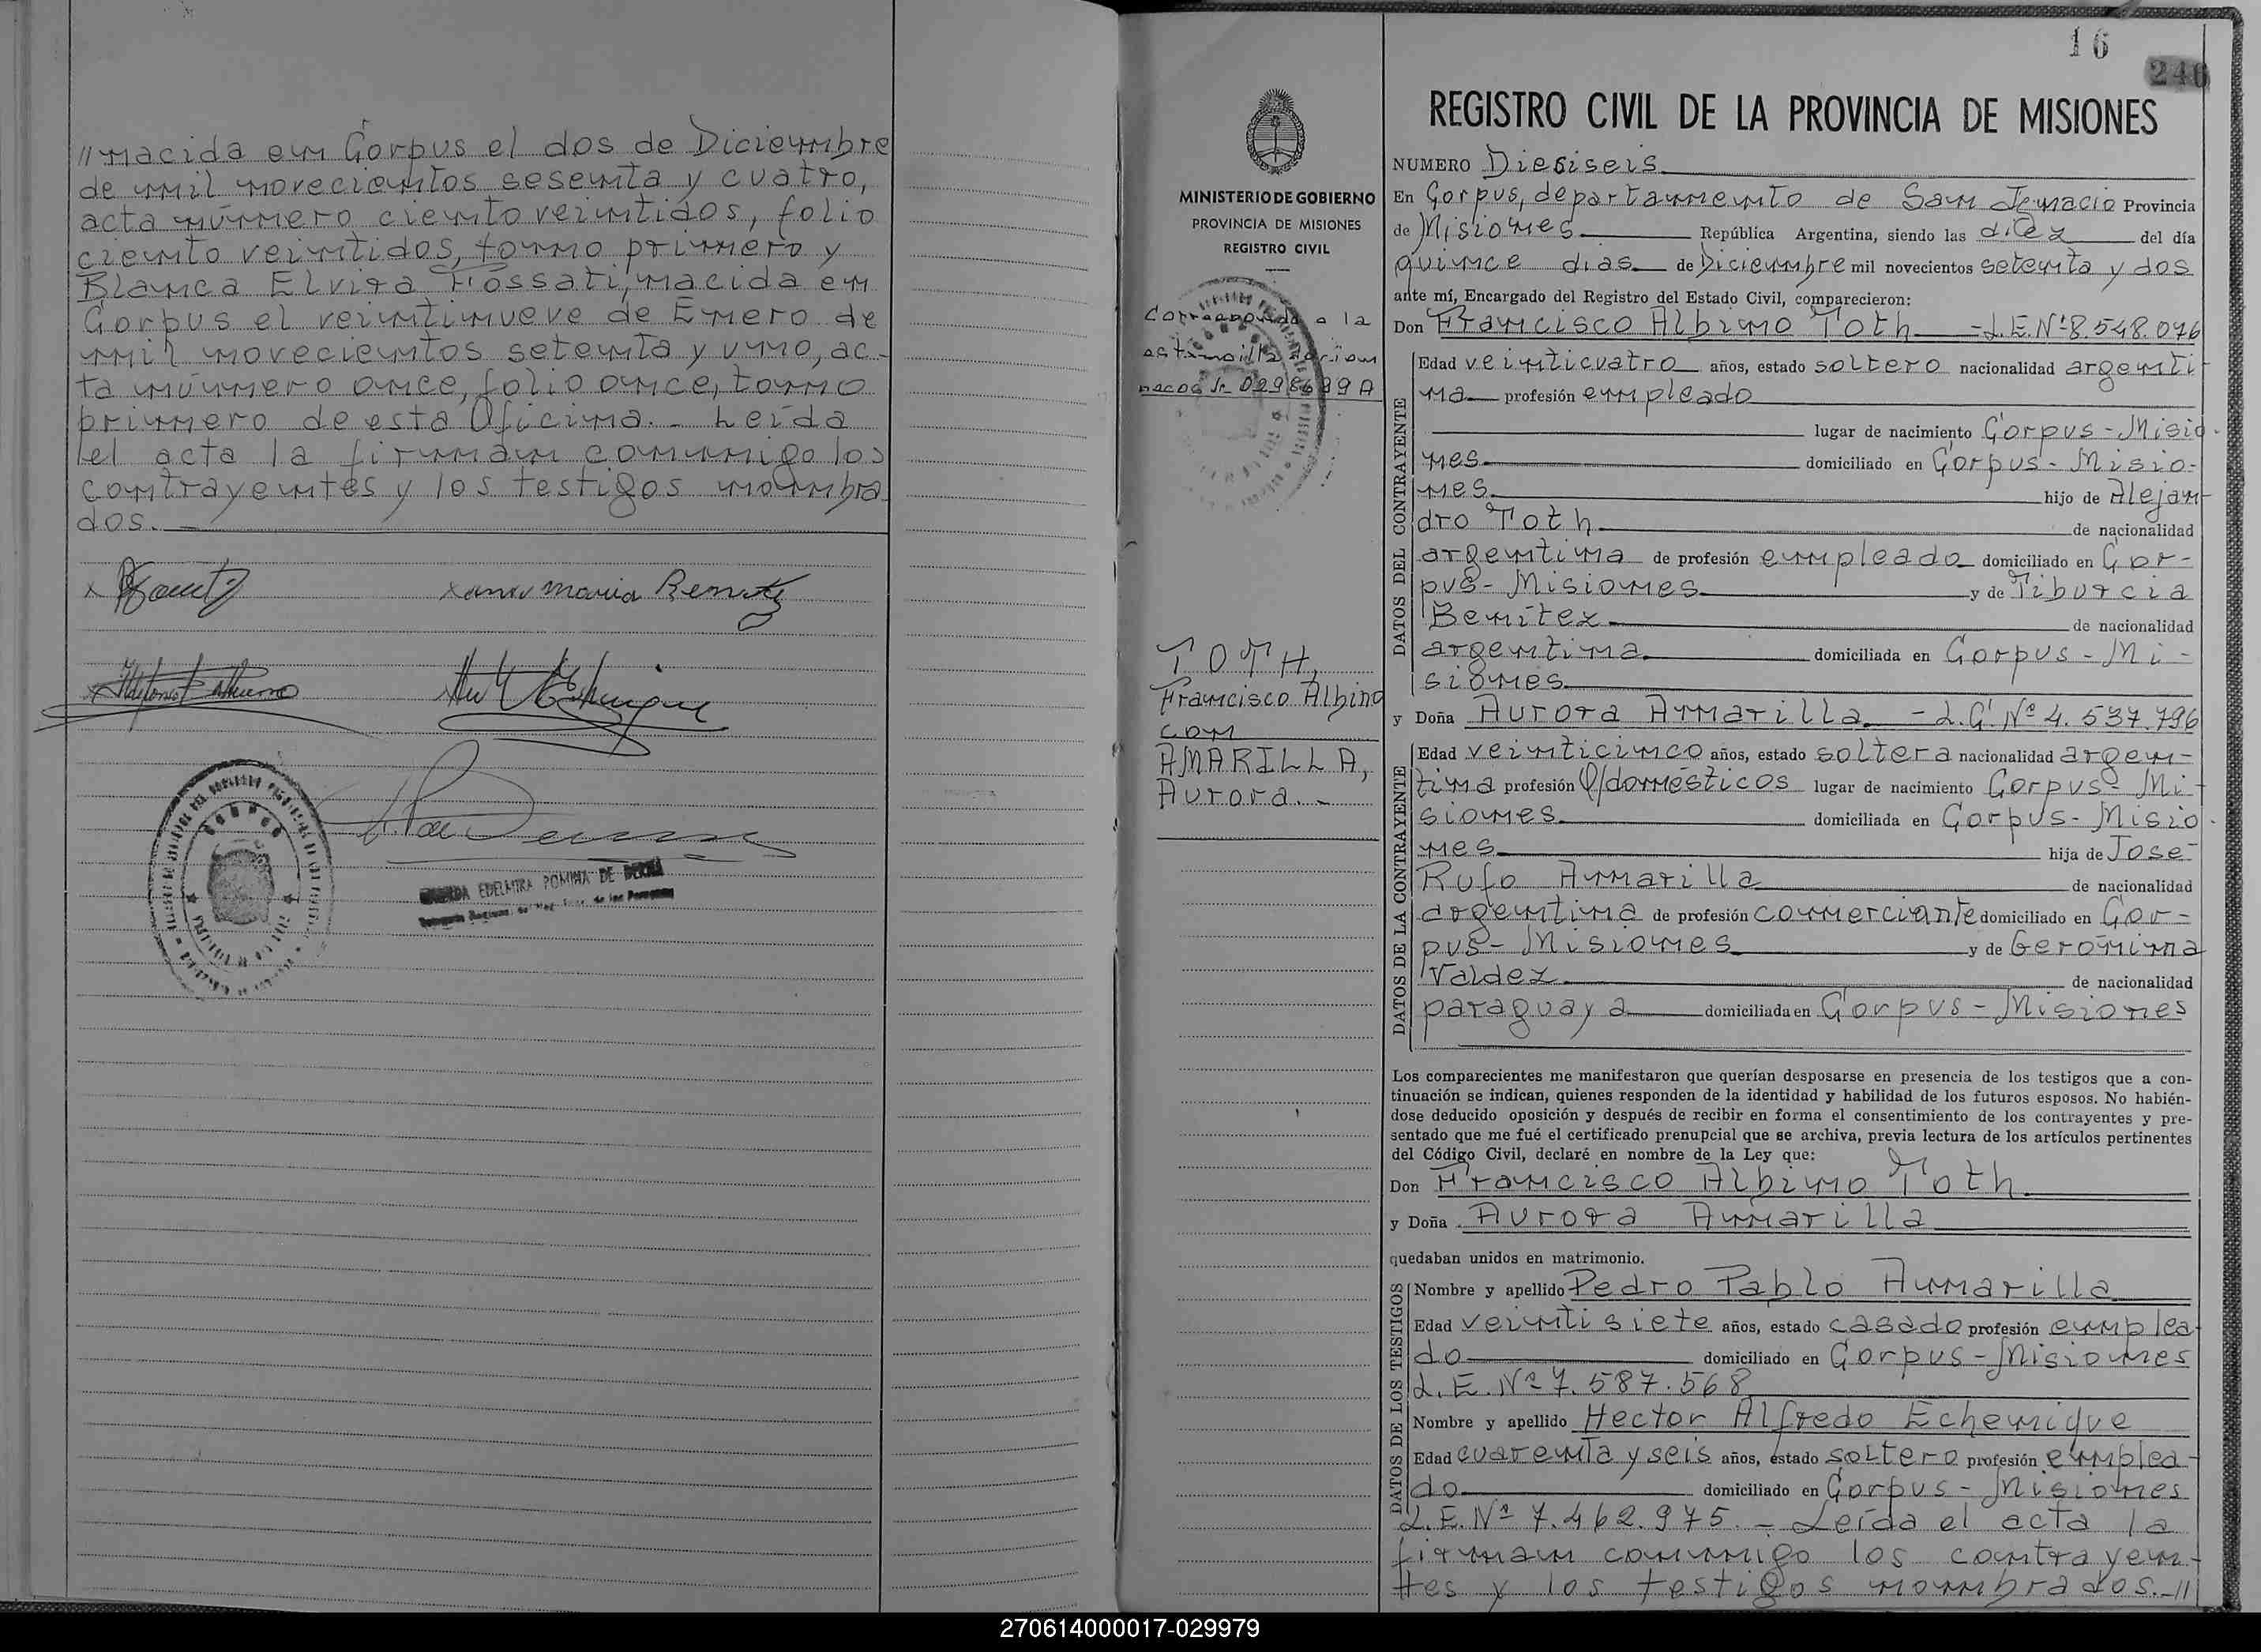 //nacida en Corpus el dos de Diciembre
de mil novecientos sesenta y cuatro,
acta número ciento veintidos, folio
ciento veintidos, tomo primero y
Blanca Elvira Fossati, nacida en
Corpus el veintinueve de Enero de
mil novecientos setenta y uno, ac-
ta número once, folio once, tomo
primero de esta Oficina.- Leída
el acta la firman conmigo los
contrayentes y los testigos nombra
dos.-
EDELMIRA POMINA DE
16
246
MINISTERIO DE GOBIERNO
PROVINCIA DE MISIONES
REGISTRO CIVIL
Corresponde a la
estampilla
TOTH,
Francisco Albino
con
AMARILLA,
Aurora.-
REGISTRO CIVIL DE LA PROVINCIA DE MISIONES
NUMERO Dieciseis
En Corpus, departamento de San Ignacio Provincia
de Misiones República Argentina, siendo las diez del día
quince dias de Diciembre mil novecientos setenta y dos
ante mí, Encargado del Registro del Estado Civil, comparecieron:
Don Francisco Albino Toth - L.E.Nº 8.548.076
DATOS DEL CONTRAYENTE
Edad veinticuatro años, estado soltero nacionalidad argenti
na profesión empleado
lugar de nacimiento Corpus - Misio-
nes domiciliado en Corpus - Misio-
nes hijo de Alejan-
dro Toth de nacionalidad
argentina de profesión empleado domiciliado en Cor-
pus - Misiones y de Tiburcia
Benítez de nacionalidad
argentina domiciliada en Corpus - Mi-
siones
y Doña Aurora Amarilla - L.C. Nº 4.537.796
DATOS DE LA CONTRAYENTE
Edad veinticinco años, estado soltera nacionalidad argen-
tina profesión Q/domésticos lugar de nacimiento Corpus - Mi-
siones domiciliada en Corpus - Misio-
nes hija de José
Rufo Amarilla de nacionalidad
argentina de profesión comerciante domiciliado en Cor-
pus - Misiones y de Gerónima
Valdez de nacionalidad
paraguaya domiciliada en Corpus - Misiones
Los comparecientes me manifestaron que querían desposarse en presencia de los testigos que a con-
tinuación se indican, quienes responden de la identidad y habilidad de los futuros esposos. No habién-
dose deducido oposición y después de recibir en forma el consentimiento de los contrayentes y pre-
sentado que me fué el certificado prenupcial que se archiva, previa lectura de los artículos pertinentes
del Código Civil, declaré en nombre de la Ley que:
Don Francisco Albino Toth
y Doña Aurora Amarilla
quedaban unidos en matrimonio.
DATOS DE LOS TESTIGOS
Nombre y apellido Pedro Pablo Amarilla
Edad veintisiete años, estado casado profesión emplea-
do domiciliado en Corpus - Misiones
L.E. Nº 7.587.568
Nombre y apellido Hector Alfredo Echenique
Edad cuarenta y seis años, estado soltero profesión emplea-
do domiciliado en Corpus - Misiones
L.E. Nº 7.462.975.- Leída el acta la
firman conmigo los contrayen-
tes y los testigos nombrados.-//
270614000017-029979